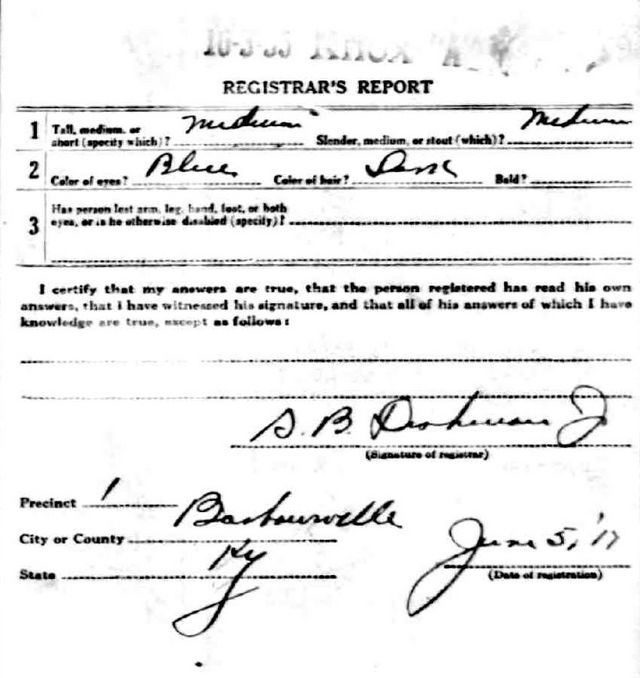 REGISTRAR'S REPORT
1 Tall, medium, or short (specify which)? Medium Slender, medium, or stout (which)? Medium
2 Color of eyes? Blue Color of hair? Dark Bald?
3 Has person lost arm, leg, hand, foot, or both
eyes, or is he otherwise disabled (specify)?
I certify that my answers are true, that the person registered has read his own
answers, that I have witnessed his signature, and that all of his answers of which I have
knowledge are true, except as follows:
S. B. Dishman Jr
(Signature of registrar)
Precinct 1
City or County Barbourville
State Ky
June 5, '17
(Date of registration)